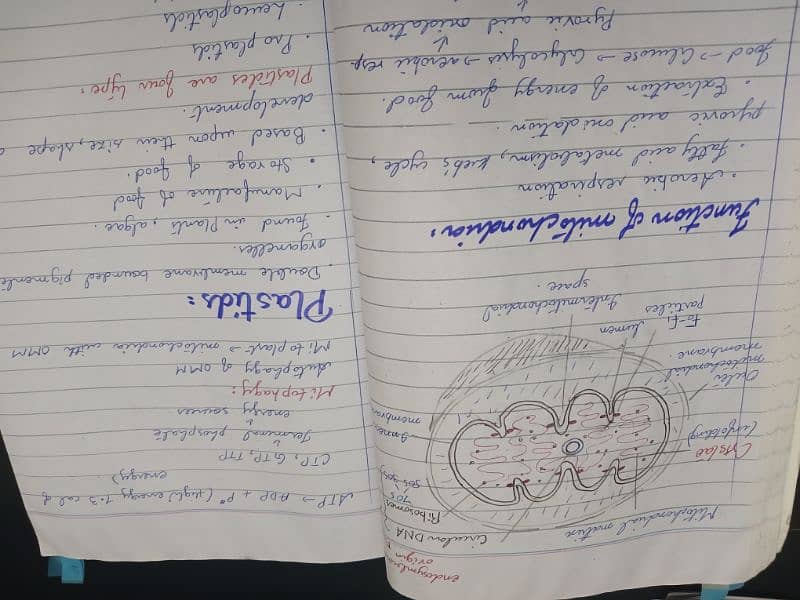 endosymbiotic
origin
Mitochondrial matrix
Circular DNA
Ribosomes
70s
50s, 30s
Cristae
(infolding)
Inner
membran
Outer
mitochondrial
membrane
F0-F1
particles
lumen
Intermitochondrial
space.
Function of mitochondria.
• Aerobic respiration
• Fatty acid metabolism, kreb's cycle,
pyrovic acid oxidation.
• Extraction of energy from food.
food → Glucose → Glycolysis → aerobic resp
↓
Pyrovic acid oxidation
ATP → ADP + P* (high) energy 7.3 cal of
energy)
CTP, GTP, TTP
↓
Terminal phosphate
↓
energy source
Mitophagy:
Autophagy of OMM
Mitoplast → mitochondria with OMM
Plastids:
• Double membrane bounded pigmente
organelles.
• Found in Plants, algae.
• Manufacture of food
• Storage of food.
• Based upon their size, shape a
development.
Plastides are four type.
• Pro plastids
• Leucoplastids